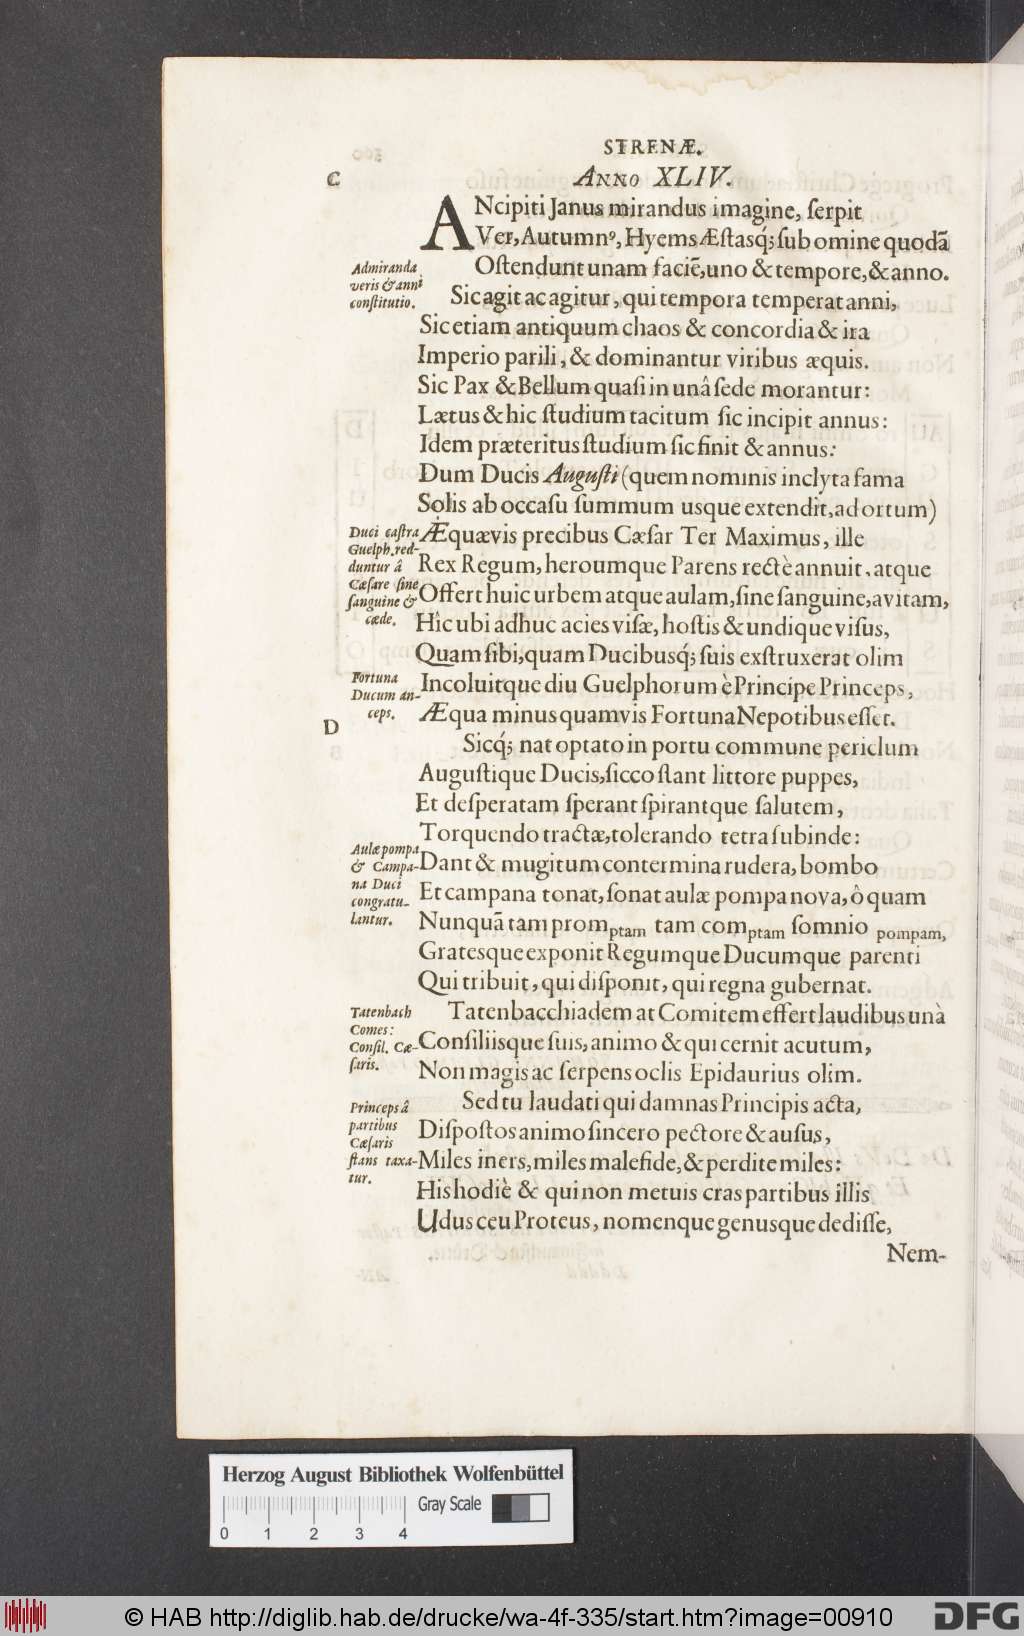 STRENÆ.
C
ANNO XLIV.
ANcipiti Janus mirandus imagine, ſerpit
Ver, Autumnꝰ, Hyems Æſtasq́; ſub omine quodã
Oſtendunt unam faciẽ, uno & tempore, & anno.
Admiranda
veris & anni
conſtitutio.
Sic agit ac agitur, qui tempora temperat anni,
Sic etiam antiquum chaos & concordia & ira
Imperio parili, & dominantur viribus æquis.
Sic Pax & Bellum quaſi in unâ ſede morantur:
Lætus & hic ſtudium tacitum ſic incipit annus:
Idem præteritus ſtudium ſic finit & annus:
Dum Ducis Auguſti (quem nominis inclyta fama
Solis ab occaſu ſummum usque extendit, ad ortum)
Duci caſtra
Guelph. red-
duntur â
Cæſare ſine
ſanguine &
cæde.
Æquævis precibus Cæſar Ter Maximus, ille
Rex Regum, heroumque Parens rectè annuit, atque
Offert huic urbem atque aulam, ſine ſanguine, avitam,
Hîc ubi adhuc acies viſæ, hoſtis & undique viſus,
Quam ſibi, quam Ducibusq́; ſuis exſtruxerat olim
Fortuna
Ducum an-
ceps.
Incoluitque diu Guelphorum è Principe Princeps,
Æqua minus quamvis Fortuna Nepotibus eſſet.
D
Sicq́; nat optato in portu commune periclum
Auguſtique Ducis, ſicco ſtant littore puppes,
Et deſperatam ſperant ſpirantque ſalutem,
Torquendo tractæ, tolerando tetra ſubinde:
Aulæ pompa
& Campa-
na Duci
congratu-
lantur.
Dant & mugitum contermina rudera, bombo
Et campana tonat, ſonat aulæ pompa nova, ô quam
Nunquã tam promptam tam comptam ſomnio pompam,
Gratesque exponit Regumque Ducumque parenti
Qui tribuit, qui diſponit, qui regna gubernat.
Tatenbach
Comes:
Conſil. Cæ-
ſaris.
Tatenbacchiadem at Comitem effert laudibus unà
Conſiliisque ſuis, animo & qui cernit acutum,
Non magis ac ſerpens oclis Epidaurius olim.
Princeps â
partibus
Cæſaris
ſtans taxa-
tur.
Sed tu laudati qui damnas Principis acta,
Diſpoſtos animo ſincero pectore & auſus,
Miles iners, miles malefide, & perdite miles:
His hodiè & qui non metuis cras partibus illis
Udus ceu Proteus, nomenque genusque dediſſe,
Nem-
Herzog August Bibliothek Wolfenbüttel
Gray Scale
0 1 2 3 4
© HAB http://diglib.hab.de/drucke/wa-4f-335/start.htm?image=00910
DFG